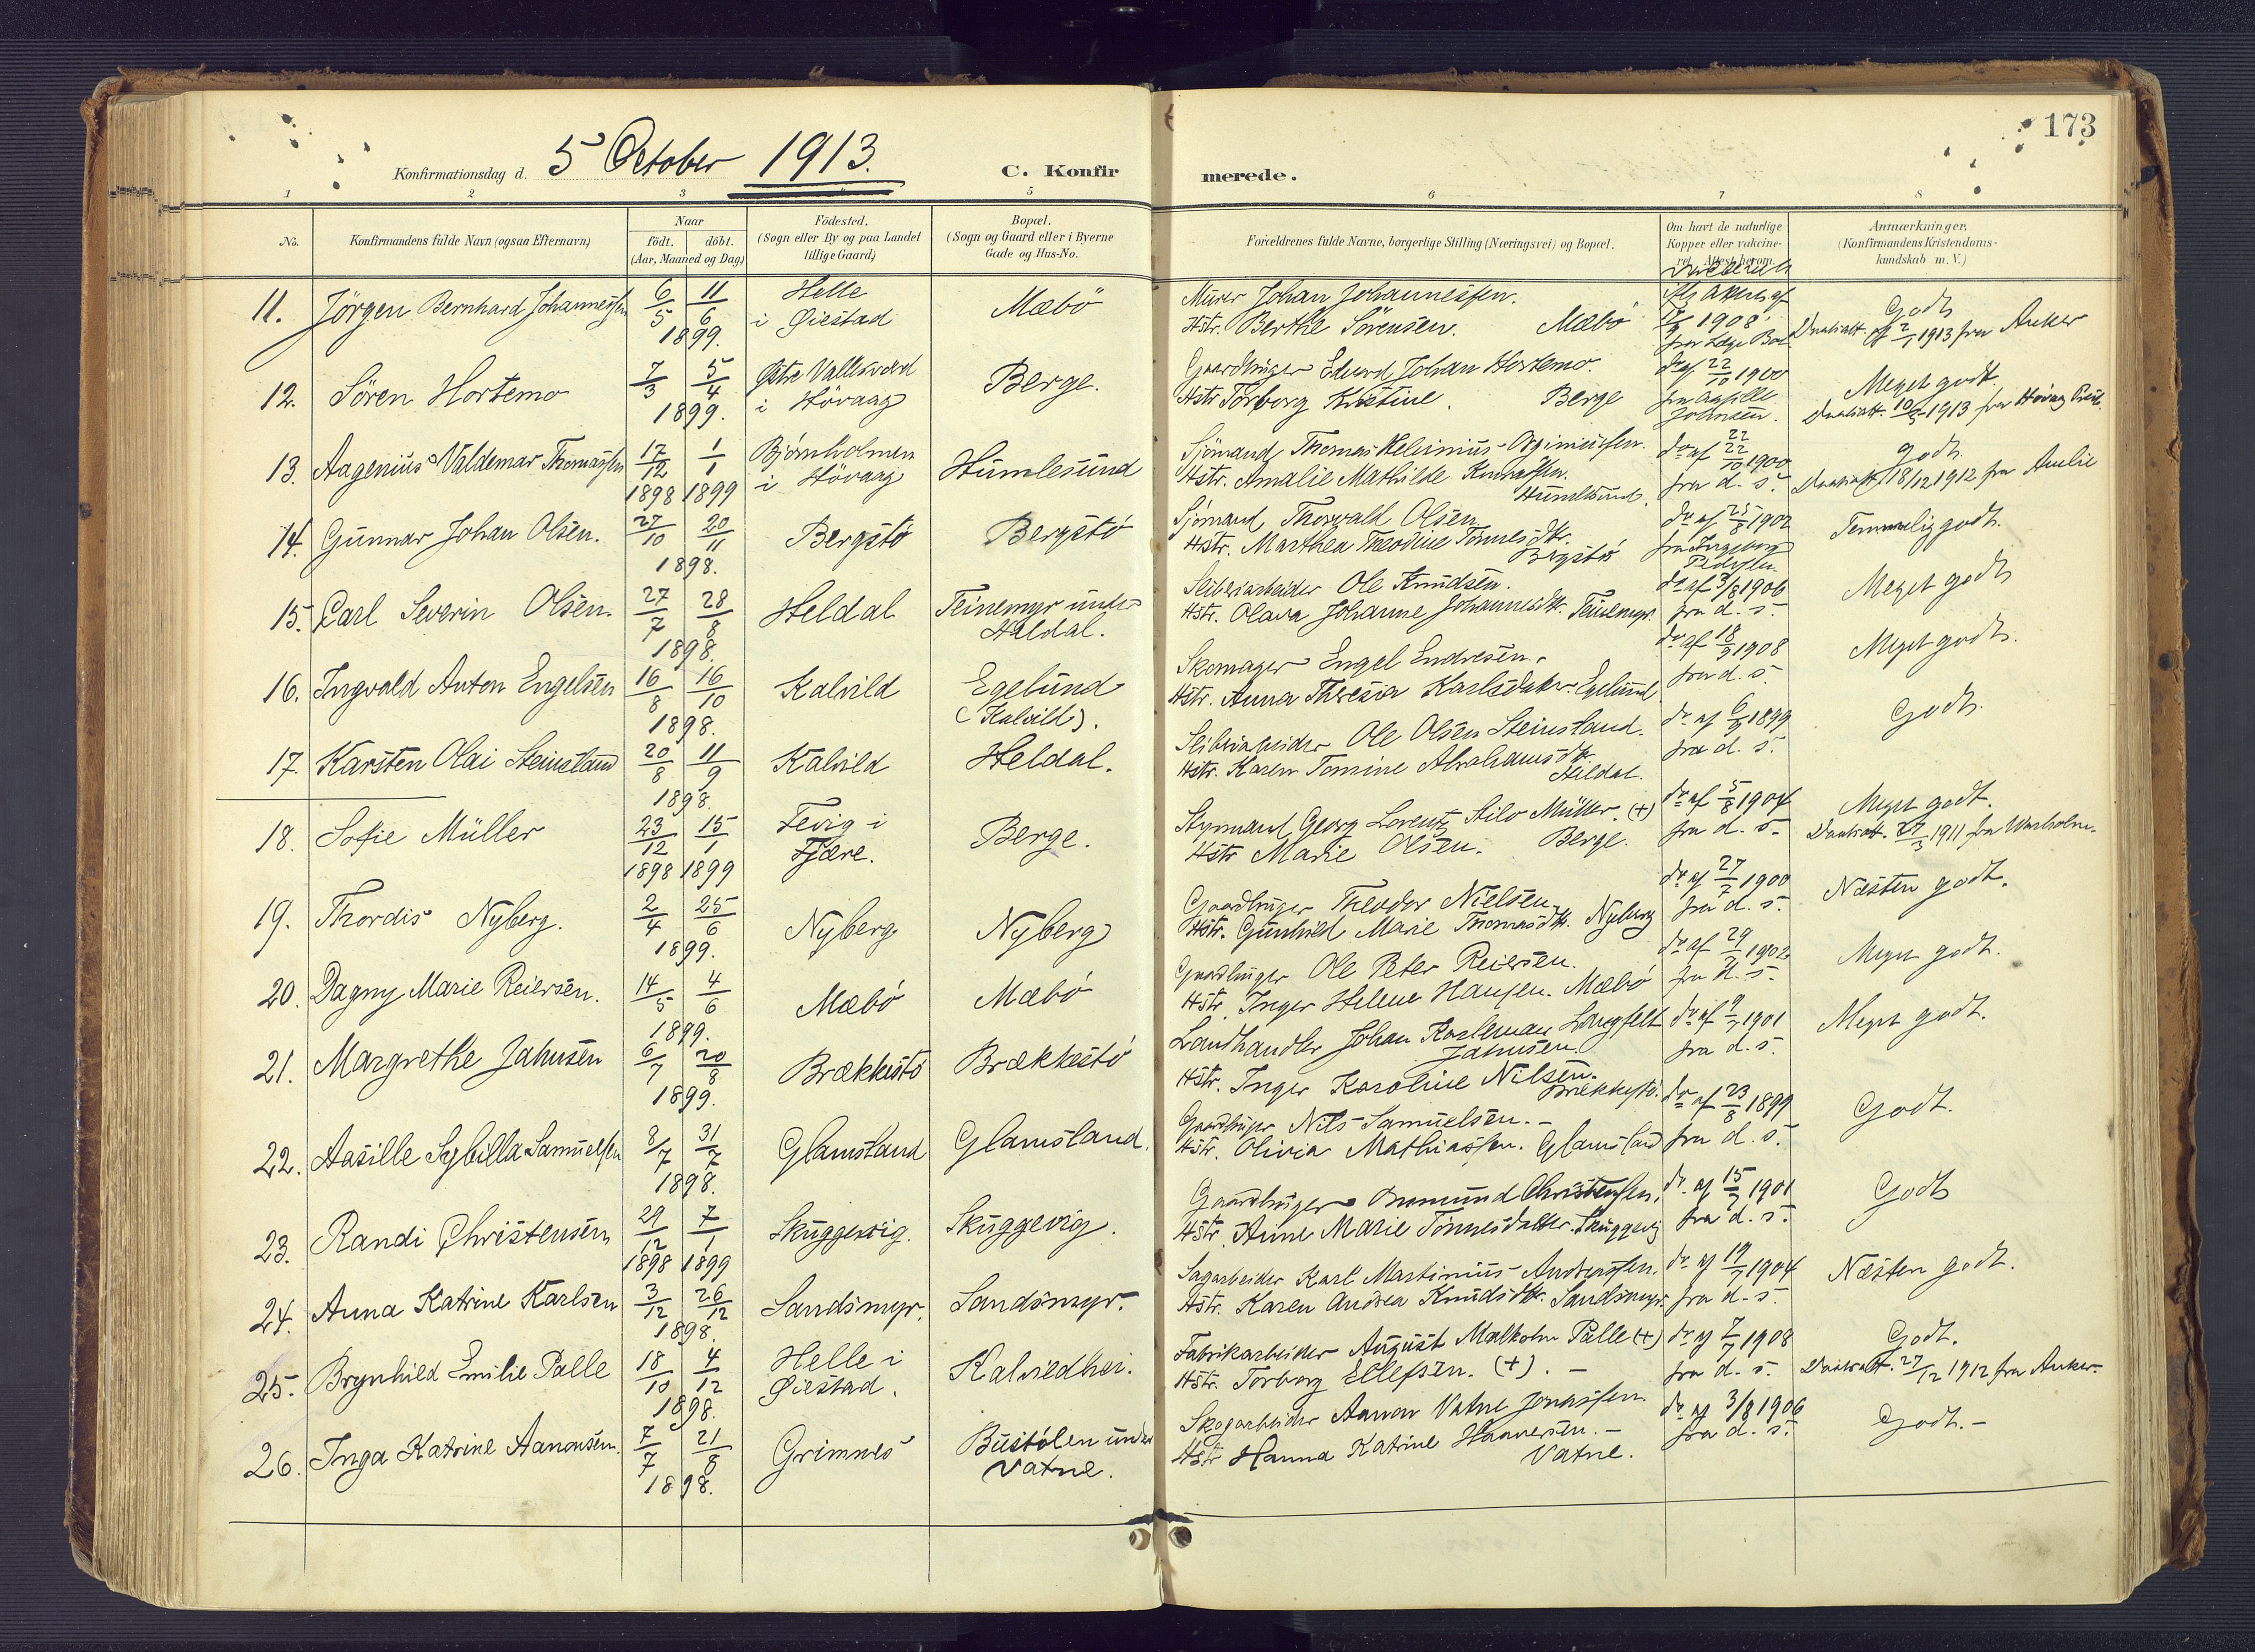 173
Konfirmationsdag d. 5 October 1913.
C. Konfirmerede.
1 2 3 4 5 6 7 8
No.
Konfirmandens fulde Navn (ogsaa Efternavn)
Naar
födt. döbt.
(Aar, Maaned og Dag)
Födested.
(Sogn eller By og paa Landet
tillige Gaard)
Bopæl.
(Sogn og Gaard eller i Byerne
Gade og Hus-No.
Forældrenes fulde Navne, borgerlige Stilling (Næringsvei) og Bopæl.
Om havt de naturlige
Kopper eller vakcine-
ret. Attest herom.
Anmærkninger.
(Konfirmandens Kristendoms-
kundskab m. V.)
11. Jörgen Bernhard Johannessen 6/5 11/6 1899. Helle
i Øiestad
Mæbö
Murer Johan Johannessen.
Hstr. Berthe Sörensen. Mæbö
1908
Godt
1913 fra Anker
12. Sören Hortemo 7/3 5/4 1899. Østre Vallesverd
i Hövaag
Berge.
Gaardbruger Edvard Johan Hortemo.
Hstr Torborg Kristine. Berge
do af 22/10 1900
fra Aasille
Johnsen.
Meget godt.
Daabsatt. 10/5 1913 fra Hövaag
13. Aagenius Valdemar Thomassen 17/12 1898 1/1 1899 Bjørnholmen
i Hövaag
Humlesund
Sjömand Thomas
Hstr. Amalie Mathilde
Humlesund.
do af 22/10 1900
fra d. s.
godt
Daabsatt. 18/12 1912 fra
14. Gunnar Johan Olsen. 27/10 20/11 1898. Bergstö Bergstö
Sjömand Thorvald Olsen
Hstr. Marthea Theodine Tönnesdtr.
Bergstö
do af 25/8 1902
fra Ingeborg
Pedersen
Temmelig godt.
15. Carl Severin Olsen. 27/7 28/8 1898. Heldal Teinemyr under
Heldal.
Sliberiarbeider Ole Knudsen.
Hstr. Olava Johanne Johannesdtr. Teinemyr.
do af 3/8 1906
fra d. s.
Meget godt
16. Ingvald Anton Engelsen 16/8 16/10 1898. Kalvild Egelund
(Kalvild).
Skomager Engel Endresen.
Hstr. Anna Theresia Karlsdatter. Egelund.
do af 18/9 1908
fra d. s.
Meget godt.
17. Karsten Olai Steinsland 20/8 11/9 1898. Kalvild Heldal.
Sliberiarbeider Ole Olsen Steinsland.
Hstr. Karen Tomine Abrahamsdtr.
Heldal.
do af 6/9 1899
fra d. s.
Godt.
18. Sofie Müller 23/12 1898 15/1 1899 Fevig i
Fjære.
Berge.
Styrmand Georg Lorentz Müller. (+)
Hstr Marie Olsen. Berge.
do af 5/8 1904
fra d. s.
Meget godt.
Daabsatt. 27/3 1911 fra
19. Thordis Nyberg. 2/4 25/6 1899. Nyberg Nyberg
Gaardbruger Theodor Nielsen
Hstr. Gunhild Marie Thomasdtr. Nyberg
do af 27/7 1900
fra d. s.
Næsten godt.
20. Dagny Marie Reiersen. 14/5 4/6 1899. Mæbö Mæbö
Gaardbruger Ole Peter Reiersen.
Hstr. Inger Helene Hansen. Mæbö
do af 29/7 1902
fra d. s.
Meget godt.
21. Margrethe Jahnsen 6/7 20/8 1899. Brækkestö Brækkestö
Landhandler Johan Karleman Langfelt
Jahnsen.
Hstr. Inger Karoline Nilsen.
Brækkestö.
do af 9/7 1901
fra d. s.
Meget godt.
22. Aasille Sybilla Samuelsen 8/7 31/7 1898. Glamsland Glamsland.
Gaardbruger Nils Samuelsen.
Hstr. Olivia Mathiassen. Glamsland
do af 23/8 1899
fra d. s.
Godt.
23. Randi Christensen 29/12 1898 7/1 1899 Skuggevig. Skuggevig.
Gaardbruger Christensen.
Hstr. Anne Marie Tönnesdatter. Skuggevig
do af 15/7 1901
fra d. s.
Godt
24. Anna Katrine Karlsen 3/12 26/12 1898. Sandsmyr. Sandsmyr.
Sagarbeider Karl Martinius Andreassen.
Hstr. Karen Andrea Knudsdtr. Sandsmyr.
do af 19/7 1904
fra d. s.
Næsten godt.
25. Brynhild Emilie Palle 18/10 4/12 1898. Helle i
Øiestad.
Kalvedhei.
Fabrikarbeider August Malkolm Palle (+)
Hstr. Torborg Ellefsen. (+).
do af 7/7 1908
fra d. s.
Godt.
Daabsatt. 27/12 1912 fra Anker.
26. Inga Katrine Aanonsen. 7/7 21/8 1898. Grimnes Bustölen under
Vatne.
Skogarbeider Aanon Vatne Jonassen.
Hstr. Hanna Katrine Haaversen.
Vatne.
do af 3/8 1906
fra d. s.
Godt.